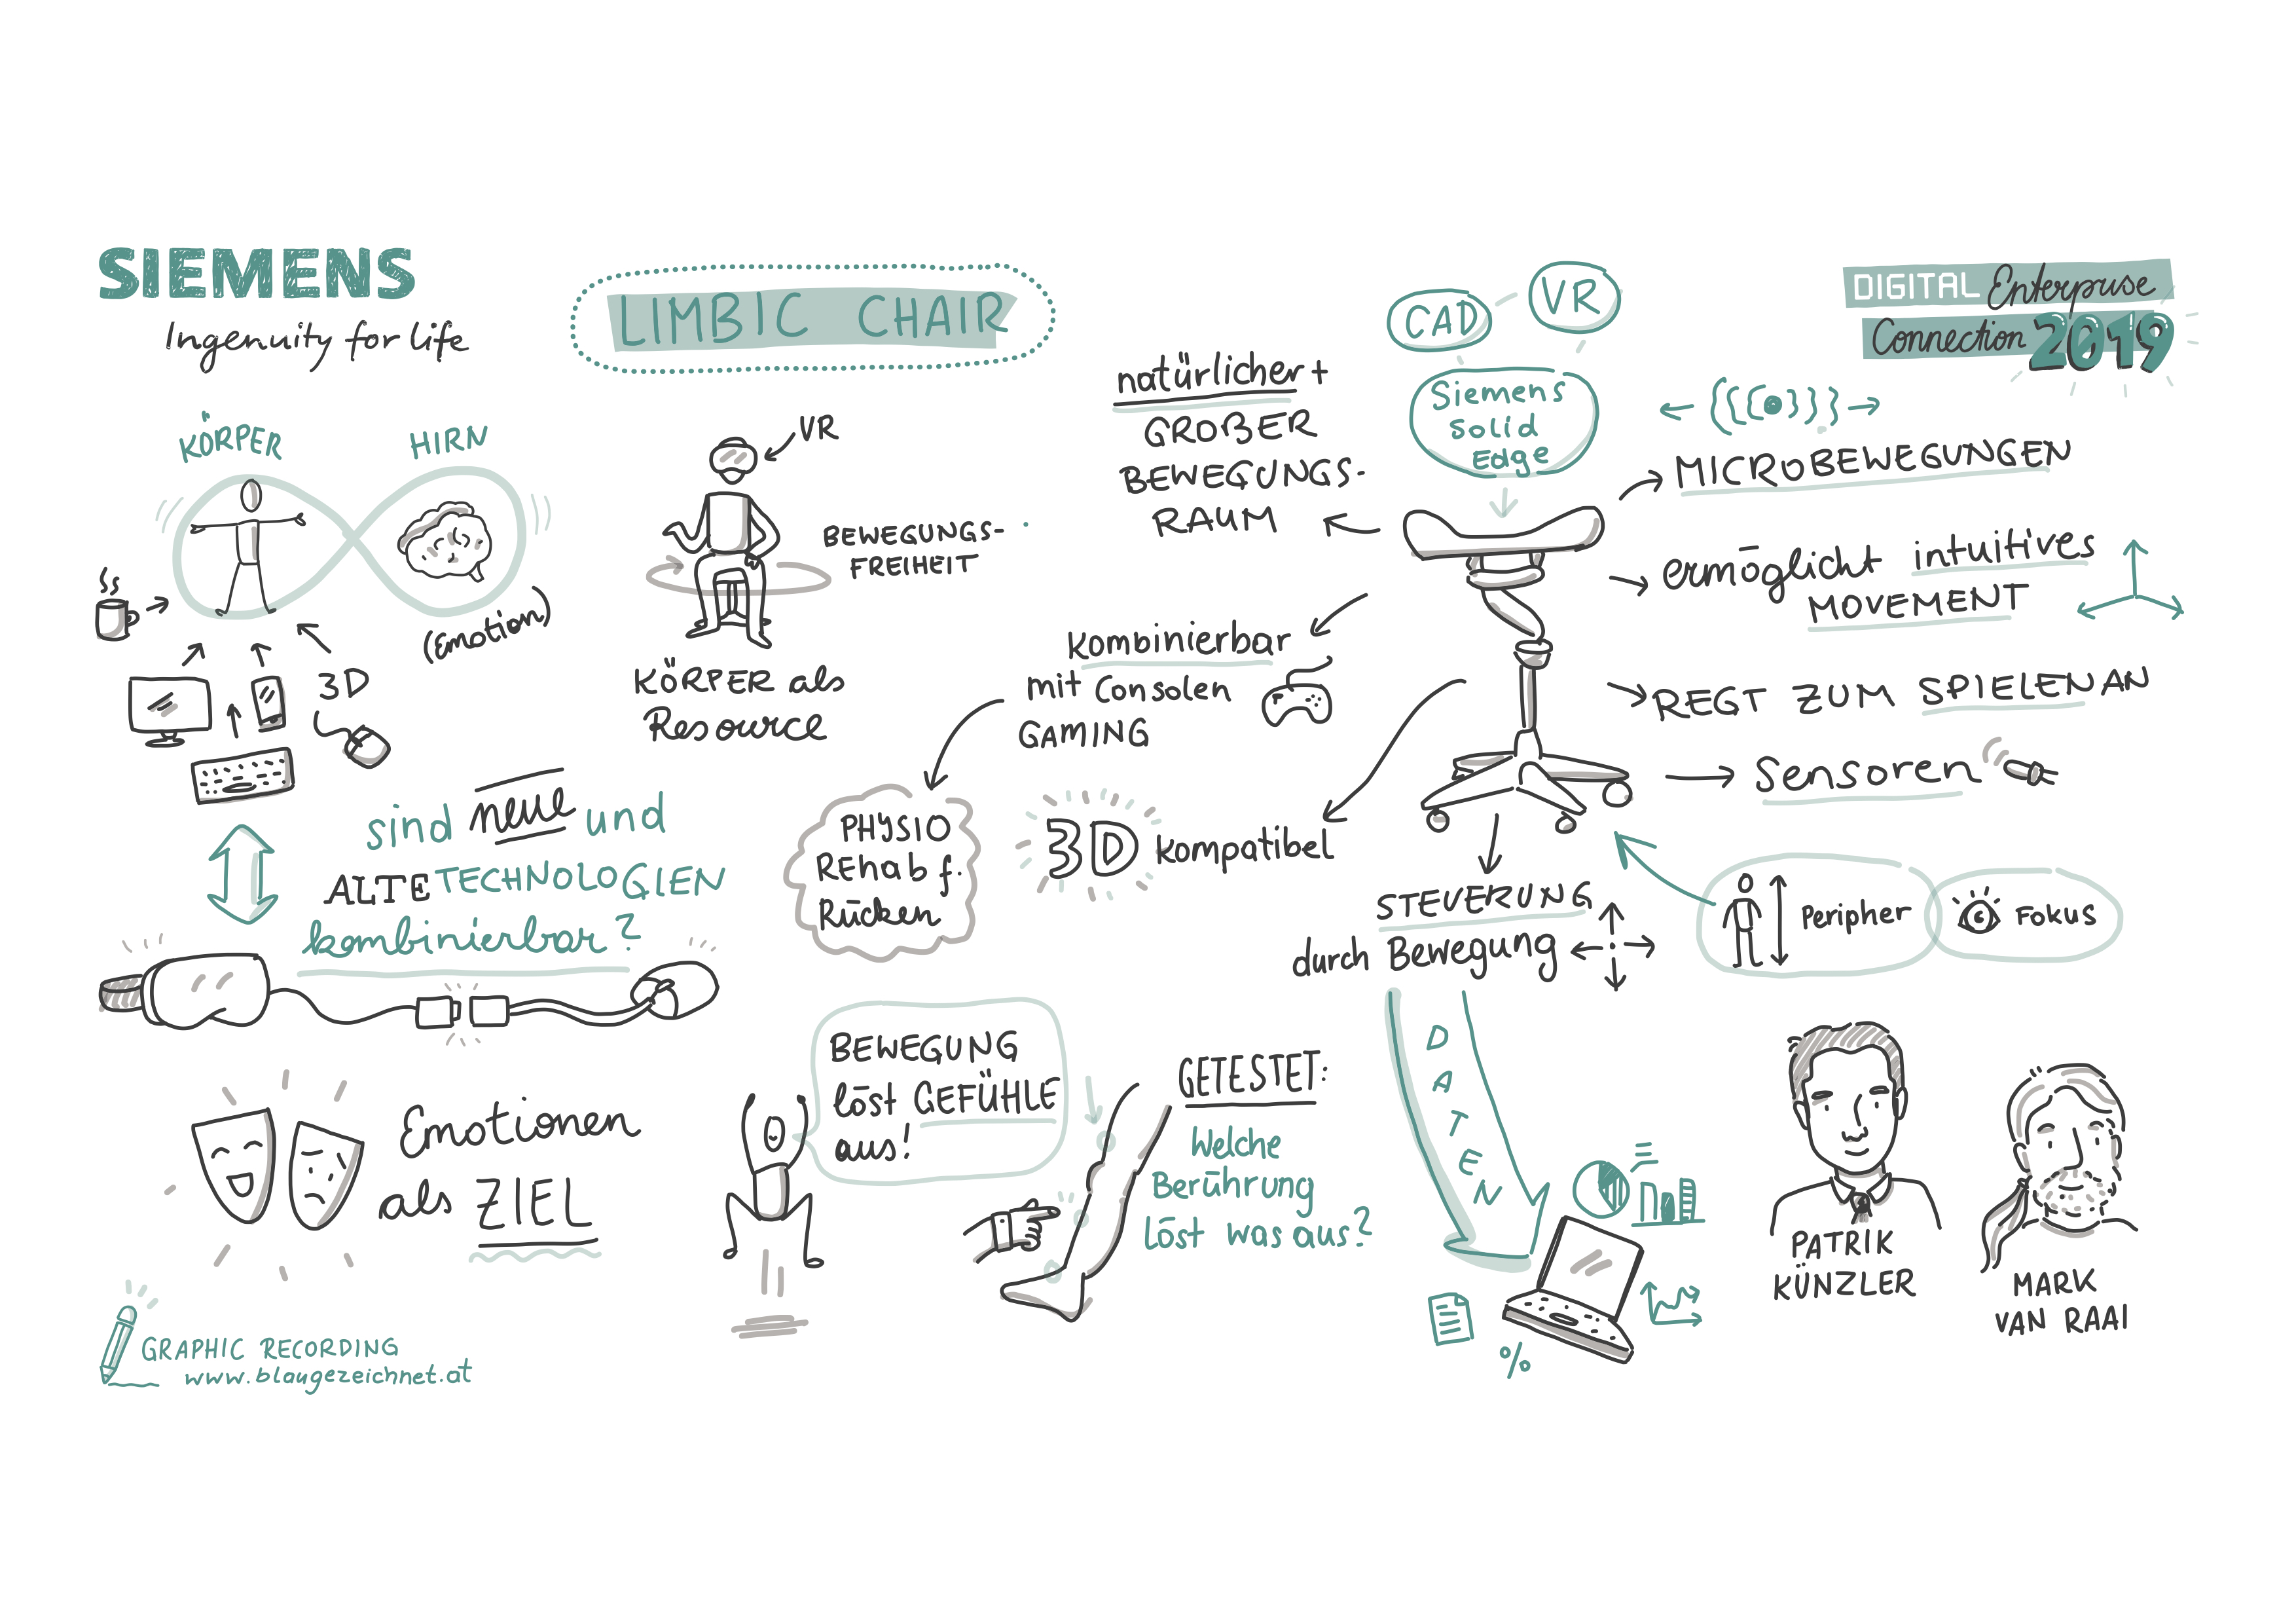 SIEMENS
Ingenuity for life
LIMBIC CHAIR
DIGITAL Enterprise
Connection 2019
KÖRPER
HIRN
(Emotion)
3D
sind neue und
ALTE TECHNOLOGIEN
kombinierbar?
Emotionen
als ZIEL
GRAPHIC RECORDING
www.blaugezeichnet.at
VR
BEWEGUNGS-
FREIHEIT
KÖRPER als
Resource
BEWEGUNG
löst GEFÜHLE
aus!
PHYSIO
REHab f.
Rücken
kombinierbar
mit Consolen
GAMING
3D kompatibel
GETESTET:
Welche
Berührung
löst was aus?
natürlicher +
GROßER
BEWEGUNGS-
RAUM
CAD
VR
Siemens
Solid
Edge
MICROBEWEGUNGEN
ermöglicht intuitives
MOVEMENT
REGT ZUM SPIELEN AN
Sensoren
Peripher
FOKUS
STEUERUNG
durch Bewegung
DATEN
%
PATRIK
KÜNZLER
MARK
VAN RAAI